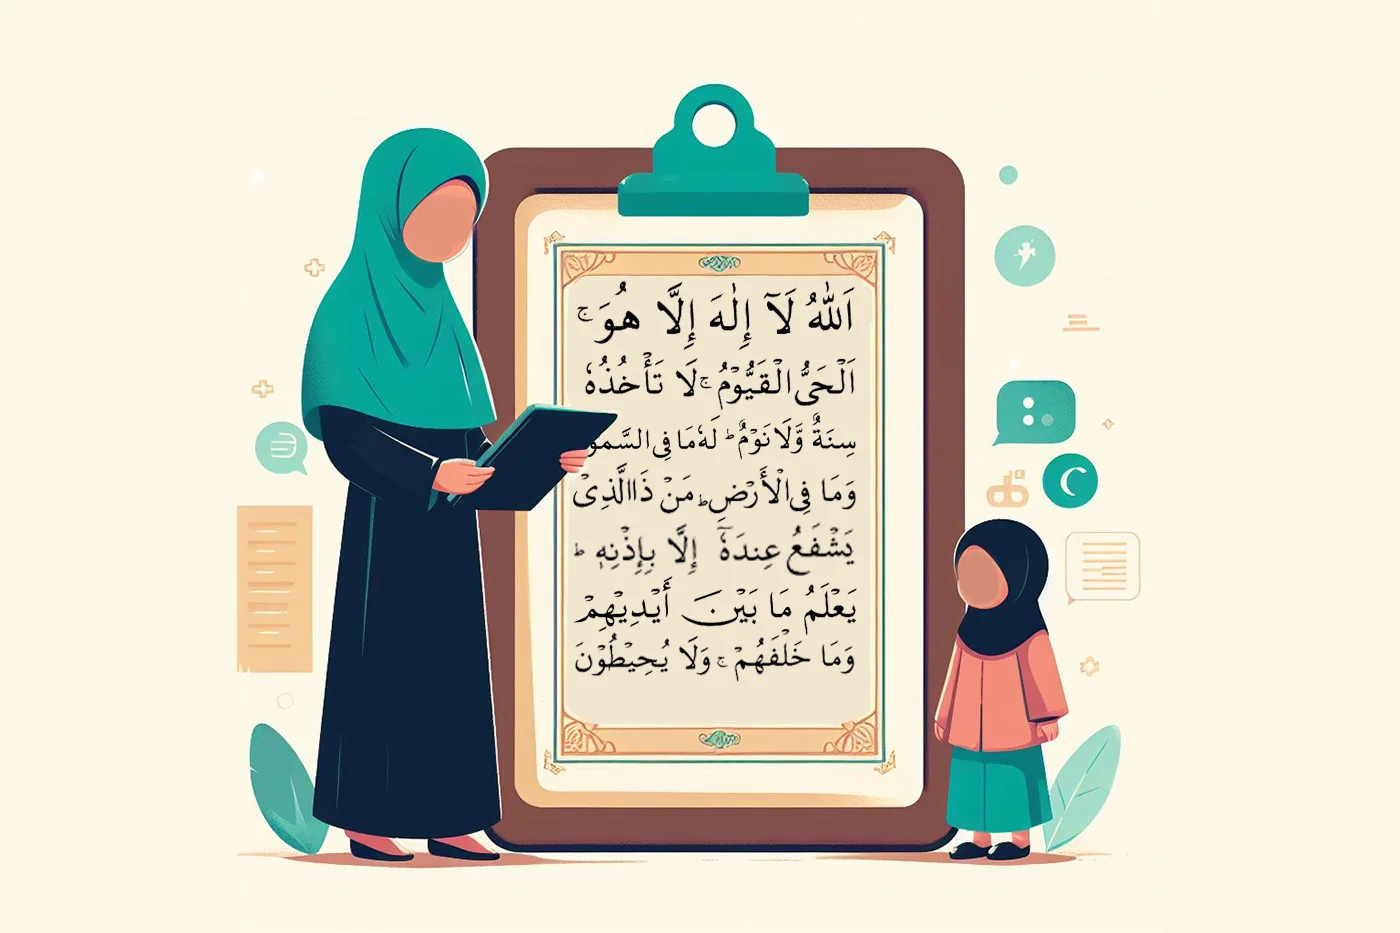 اَللّٰهُ لَآ إِلٰهَ إِلَّا هُوَ ۚ
اَلْحَيُّ الْقَيُّوْمُ ۚ لَا تَأْخُذُهٗ
سِنَةٌ وَّلَا نَوْمٌ ؕ لَهٗ مَا فِى السَّمٰو
وَمَا فِى الْأَرْضِ ؕ مَنْ ذَا الَّذِىْ
يَشْفَعُ عِندَهٗٓ إِلَّا بِإِذْنِهٖ ؕ
يَعْلَمُ مَا بَيْنَ أَيْدِيْهِمْ
وَمَا خَلْفَهُمْ ۚ وَلَا يُحِيْطُوْنَ